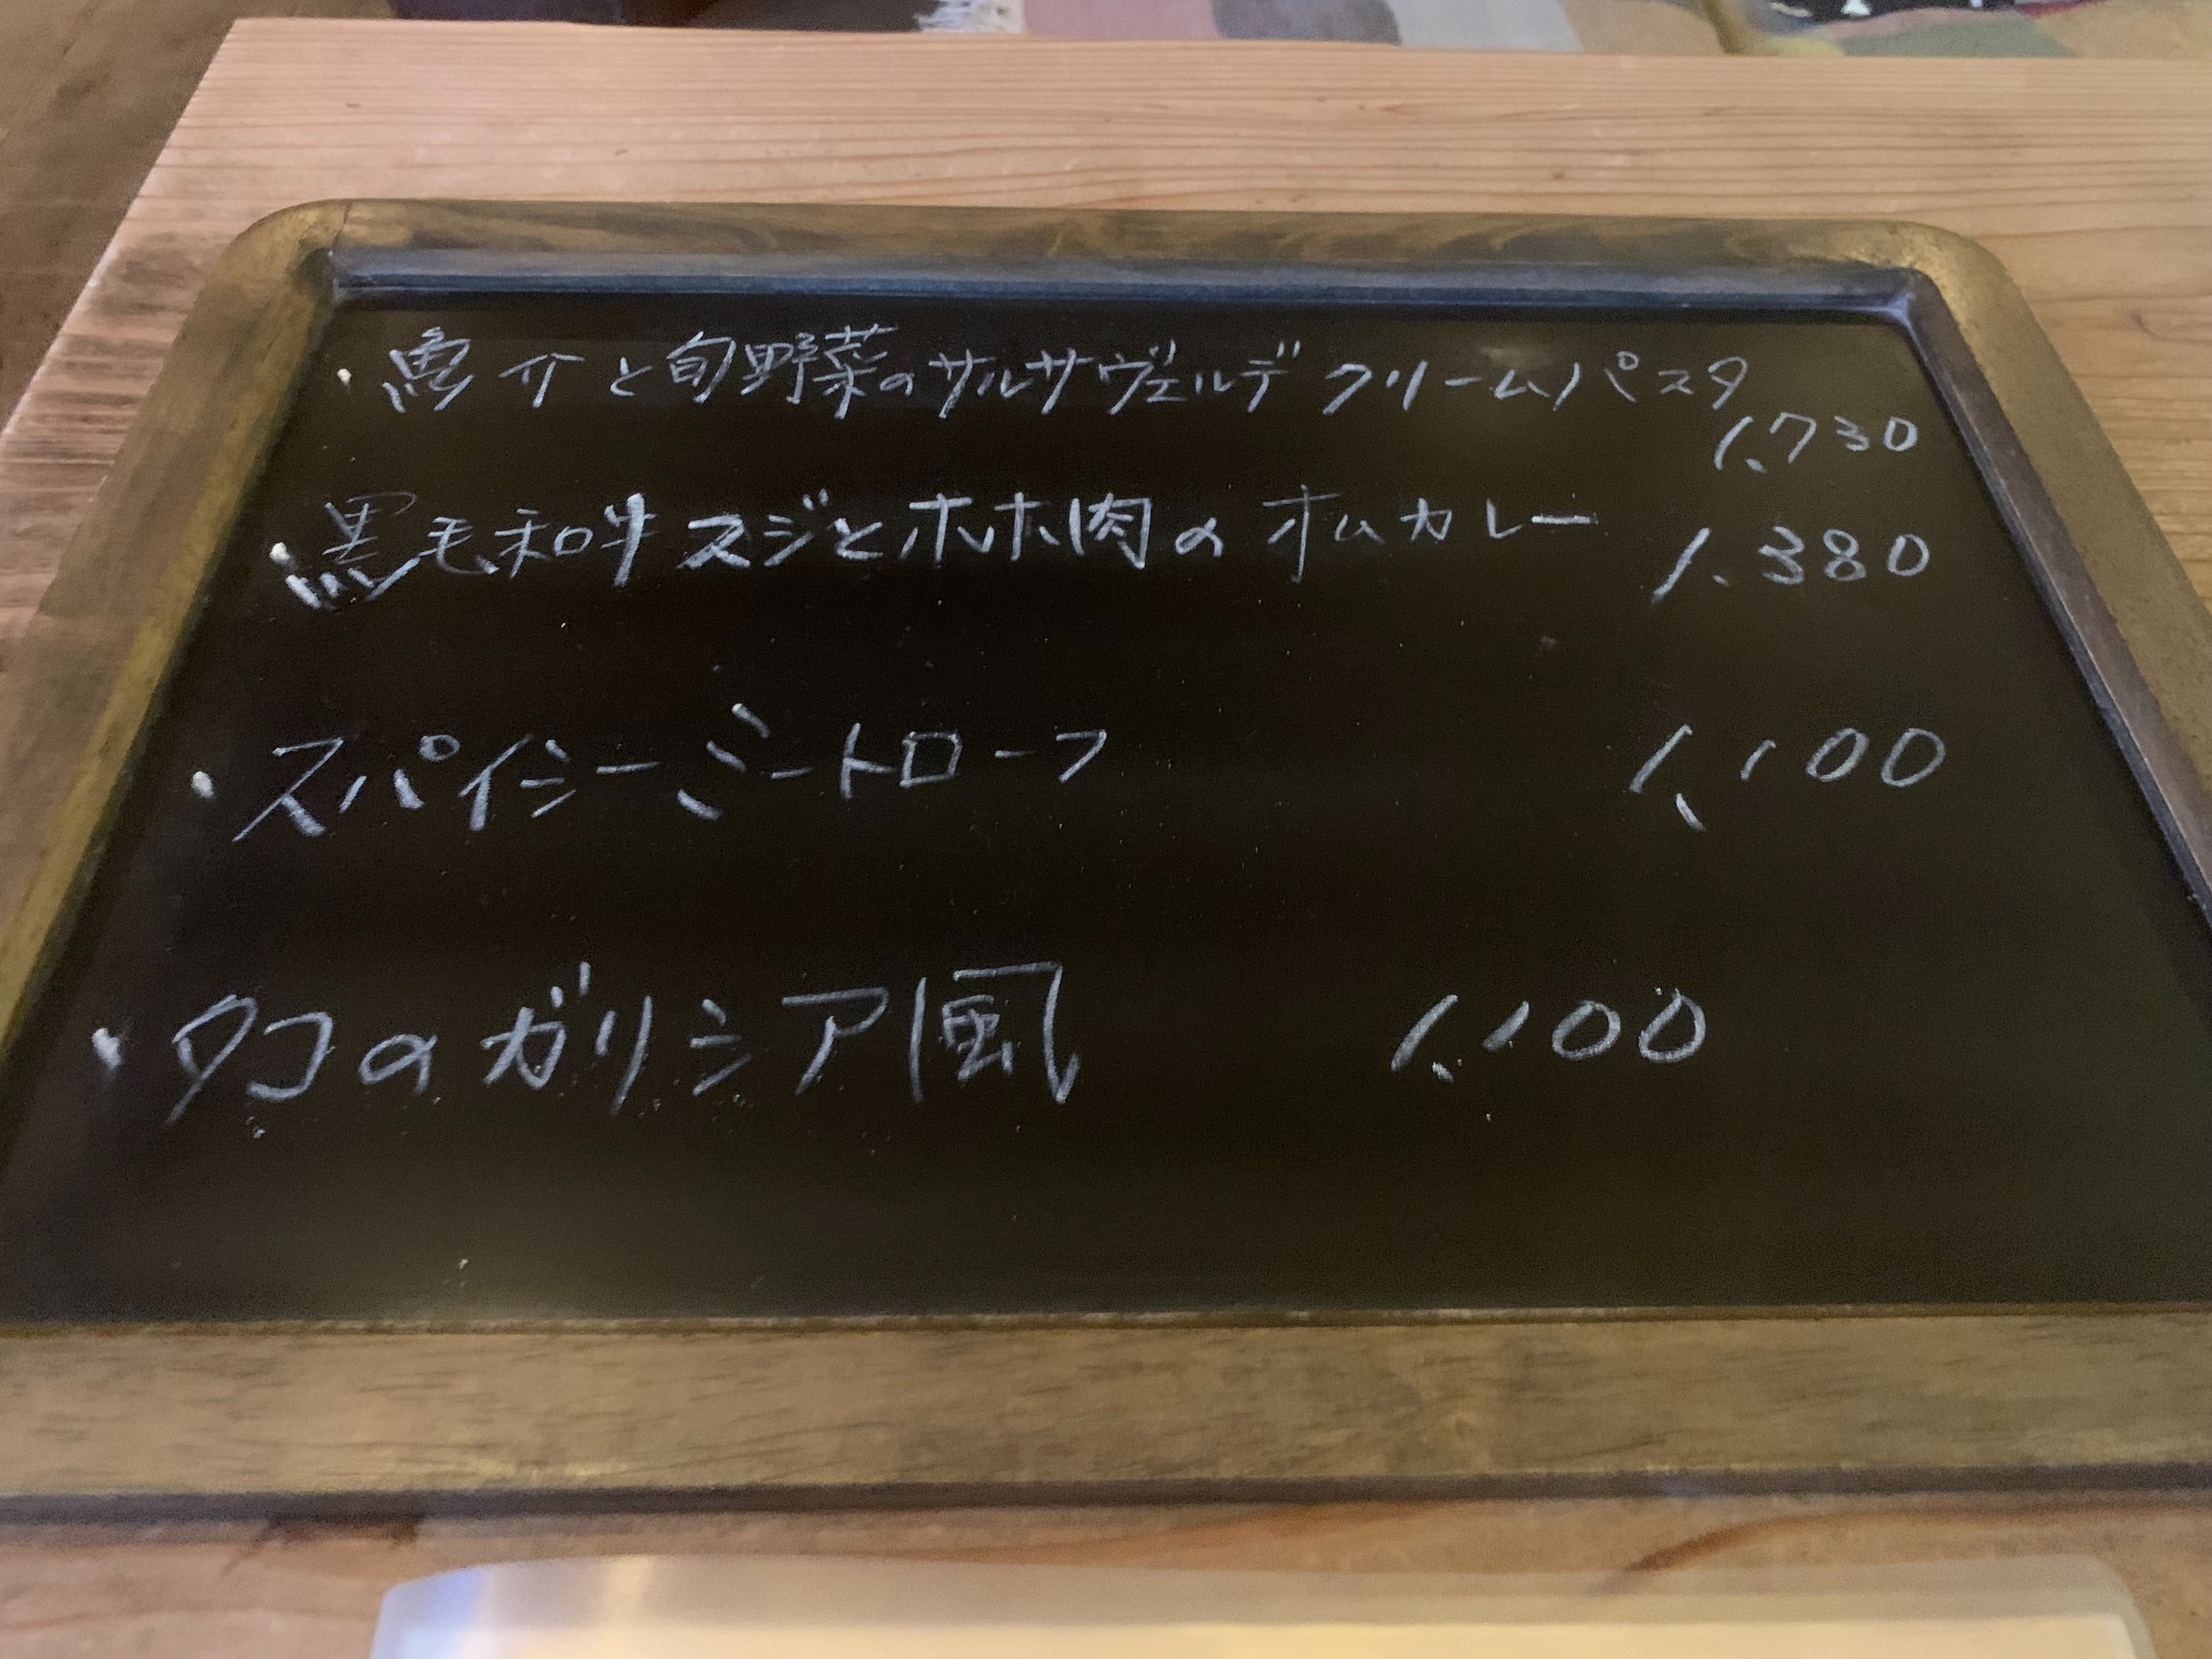 ・魚介と旬野菜のサルサヴェルデクリームパスタ
1.730
・黒毛和牛スジとホホ肉のオムカレー 1.380
・スパイシーミートローフ 1.100
・タコのガリシア風 1.100